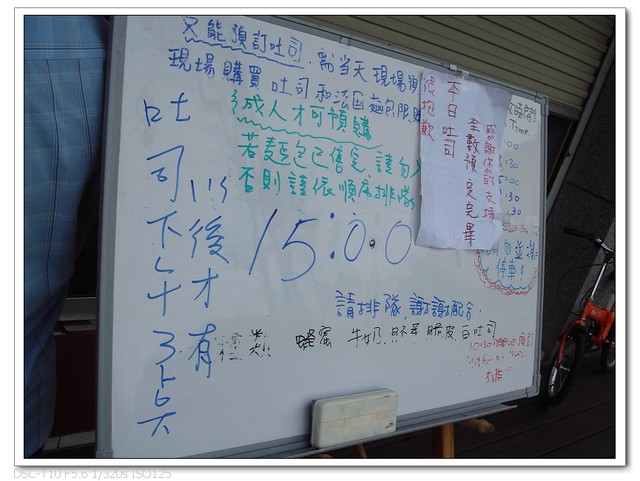 只能預訂吐司,需當天現場
現場購買吐司和法國麵包限
成人才可預購
若麵包已售完,請勿
否則請依順序排隊
很抱歉
本日吐司
全數預定完畢
感謝您的支持
Time
吐司下午3點
以後才有
15:00
請勿並排
停車!
請排隊,謝謝配合,
種類 蜂蜜 牛奶 脆皮 白吐司
DSC-T10 F5.6 1/320s ISO125